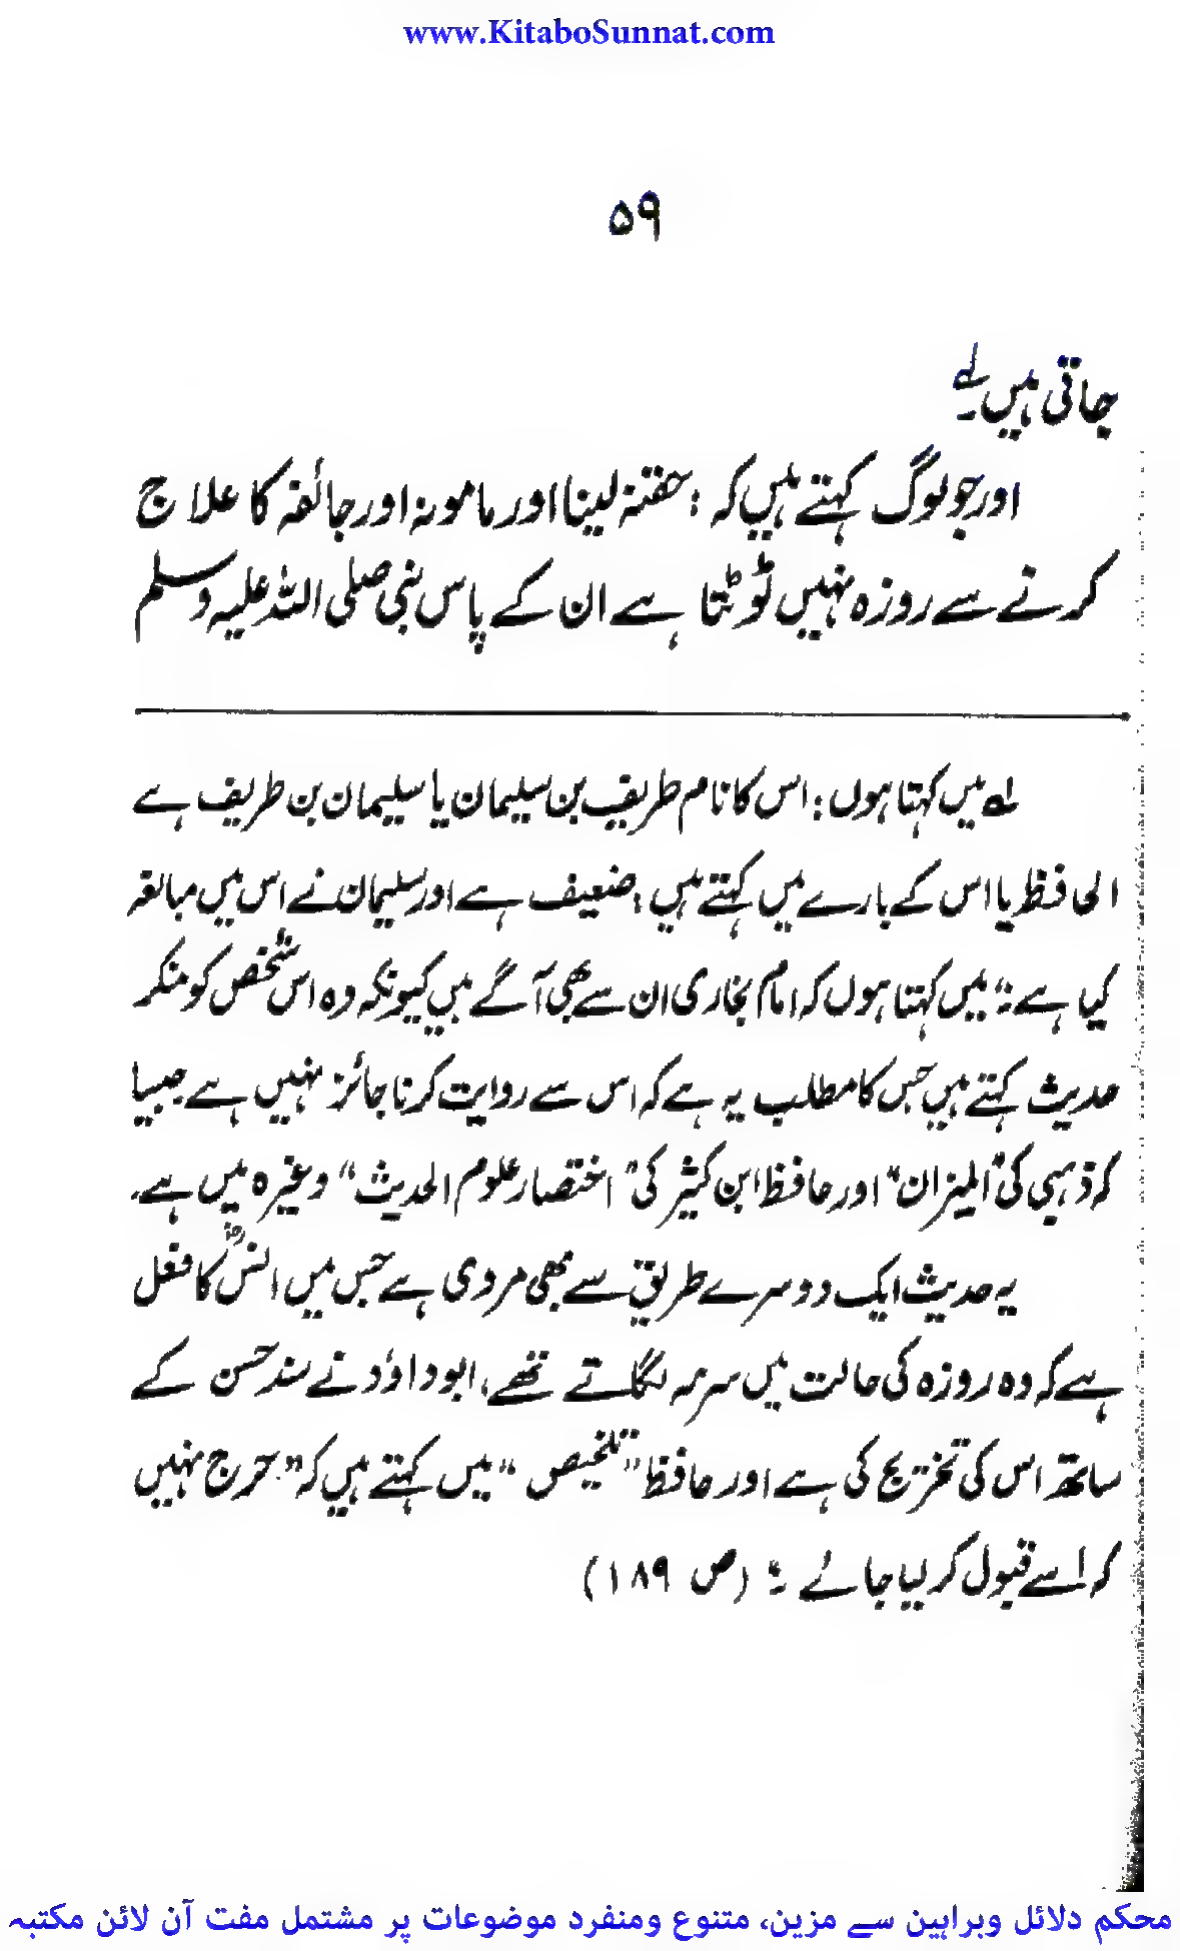 www.KitaboSunnat.com
۵۹
جاتی ہیں لے
اور جو لوگ کہتے ہیں کہ : حقنہ لینا اور مامومہ اور جائفہ کا علاج
کرنے سے روزہ نہیں ٹوٹتا ہے ان کے پاس نبی صلی اللہ علیہ وسلم
لہ میں کہتا ہوں : اس کا نام طریف بن سلیمان یا سلیمان بن طریف ہے
الحافظ یا اس کے بارے میں کہتے ہیں : ضعیف ہے اور سلیمان نے اس میں مبالغہ
کیا ہے :" میں کہتا ہوں کہ امام بخاری ان سے بھی آگے ہیں کیونکہ وہ اس شخص کو منکر
حدیث کہتے ہیں جس کا مطلب یہ ہے کہ اس سے روایت کرنا جائز نہیں ہے جیسا
کہ ذہبی کی "المیزان" اور حافظ ابن کثیر کی "اختصار علوم الحدیث" وغیرہ میں ہے۔
یہ حدیث ایک دوسرے طریق سے بھی مروی ہے جس میں انسؓ کا فعل
ہے کہ وہ روزہ کی حالت میں سرمہ لگاتے تھے، ابوداؤد نے سند حسن کے
ساتھ اس کی تخریج کی ہے اور حافظ "تلخیص" میں کہتے ہیں کہ "حرج نہیں
کہ اسے قبول کر لیا جائے :" (ص ۱۸۹)
محکم دلائل وبراہین سے مزین، متنوع ومنفرد موضوعات پر مشتمل مفت آن لائن مکتبہ